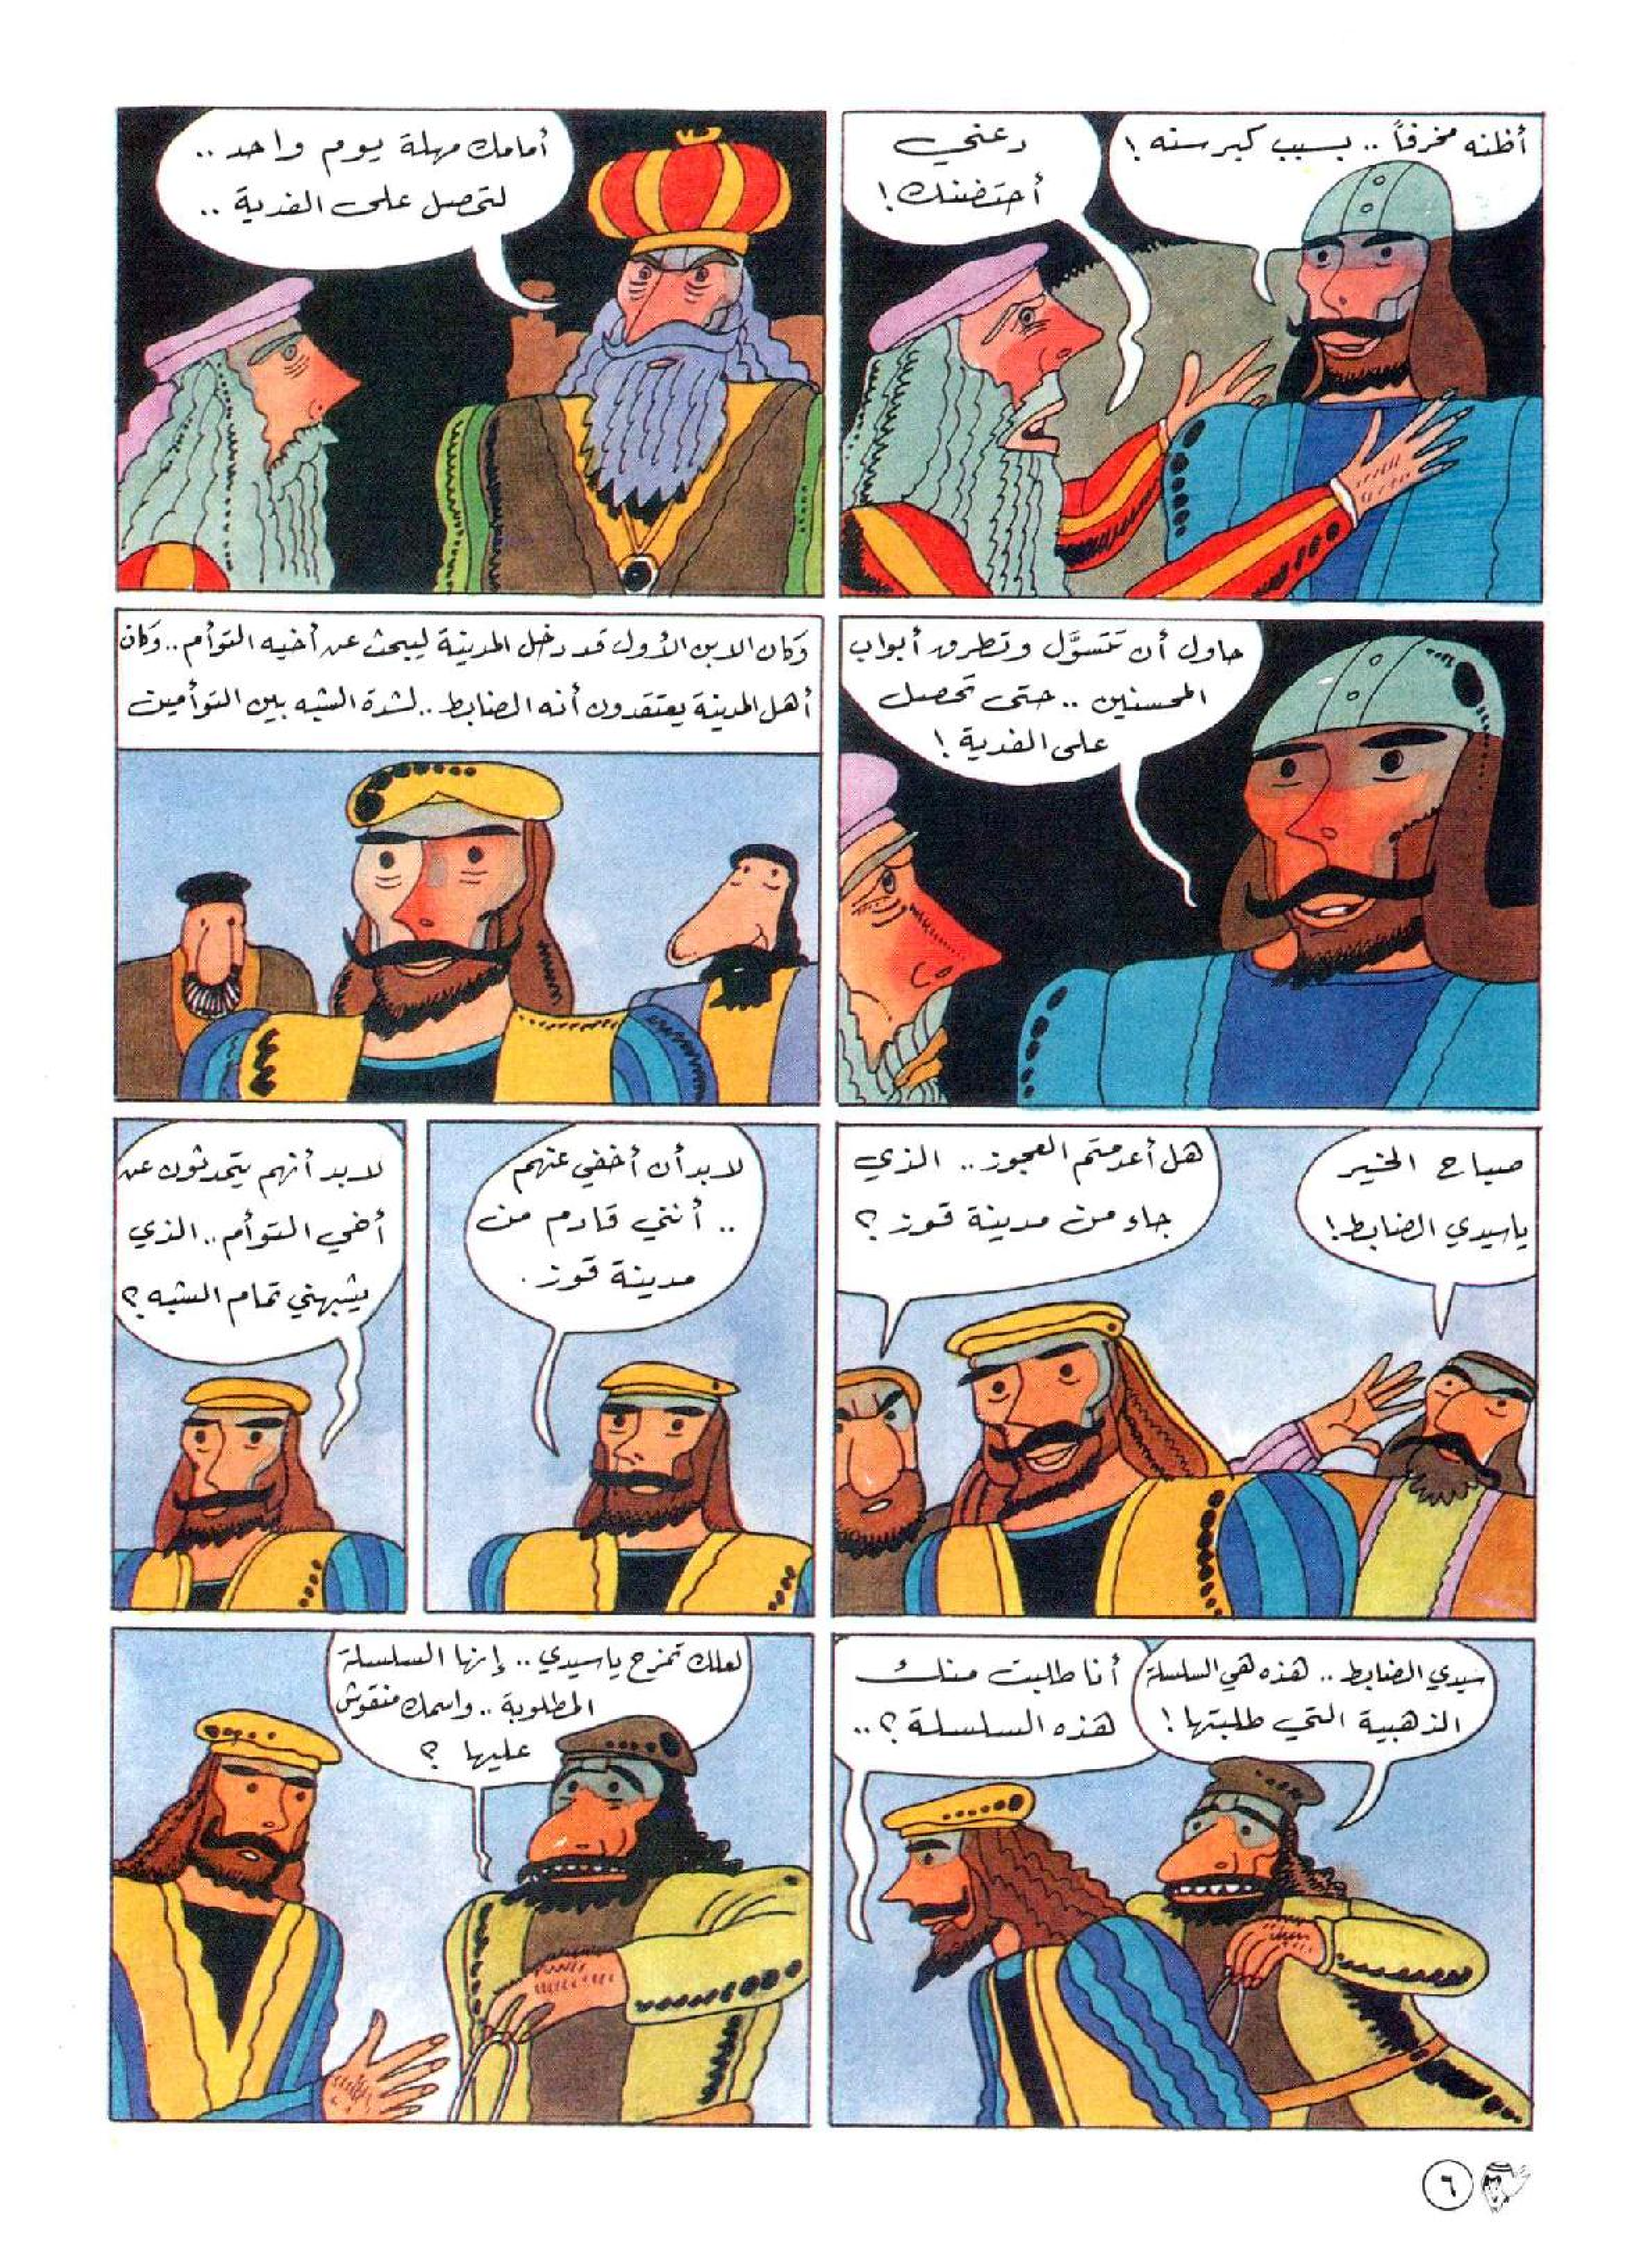 أظنه مخرفاً .. بسبب كبر سنه !
دعني
أحتضنك !
أمامك مهلة يوم واحد ..
لتحصل على الفدية ..
حاول أن تتسوَّل وتطرق أبواب
المحسنين .. حتى تحصل
على الفدية !
وكان الابن الأول قد دخل المدينة ليبحث عن أخيه التوأم .. وكان
أهل المدينة يعتقدون أنه الضابط .. لشدة الشبه بين التوأمين
صباح الخير
ياسيدي الضابط !
هل أعدمتم العجوز .. الذي
جاء من مدينة قوز ؟
لابد أن أخفي عنهم
.. أنني قادم من
مدينة قوز .
لابد أنهم يتحدثون عن
أخي التوأم .. الذي
يشبهني تمام الشبه ؟
سيدي الضابط .. هذه هي السلسلة
الذهبية التي طلبتها !
أنا طلبت منك
هذه السلسلة ؟ ..
لعلك تمزح ياسيدي .. إنها السلسلة
المطلوبة .. واسمك منقوش
عليها ؟
٦